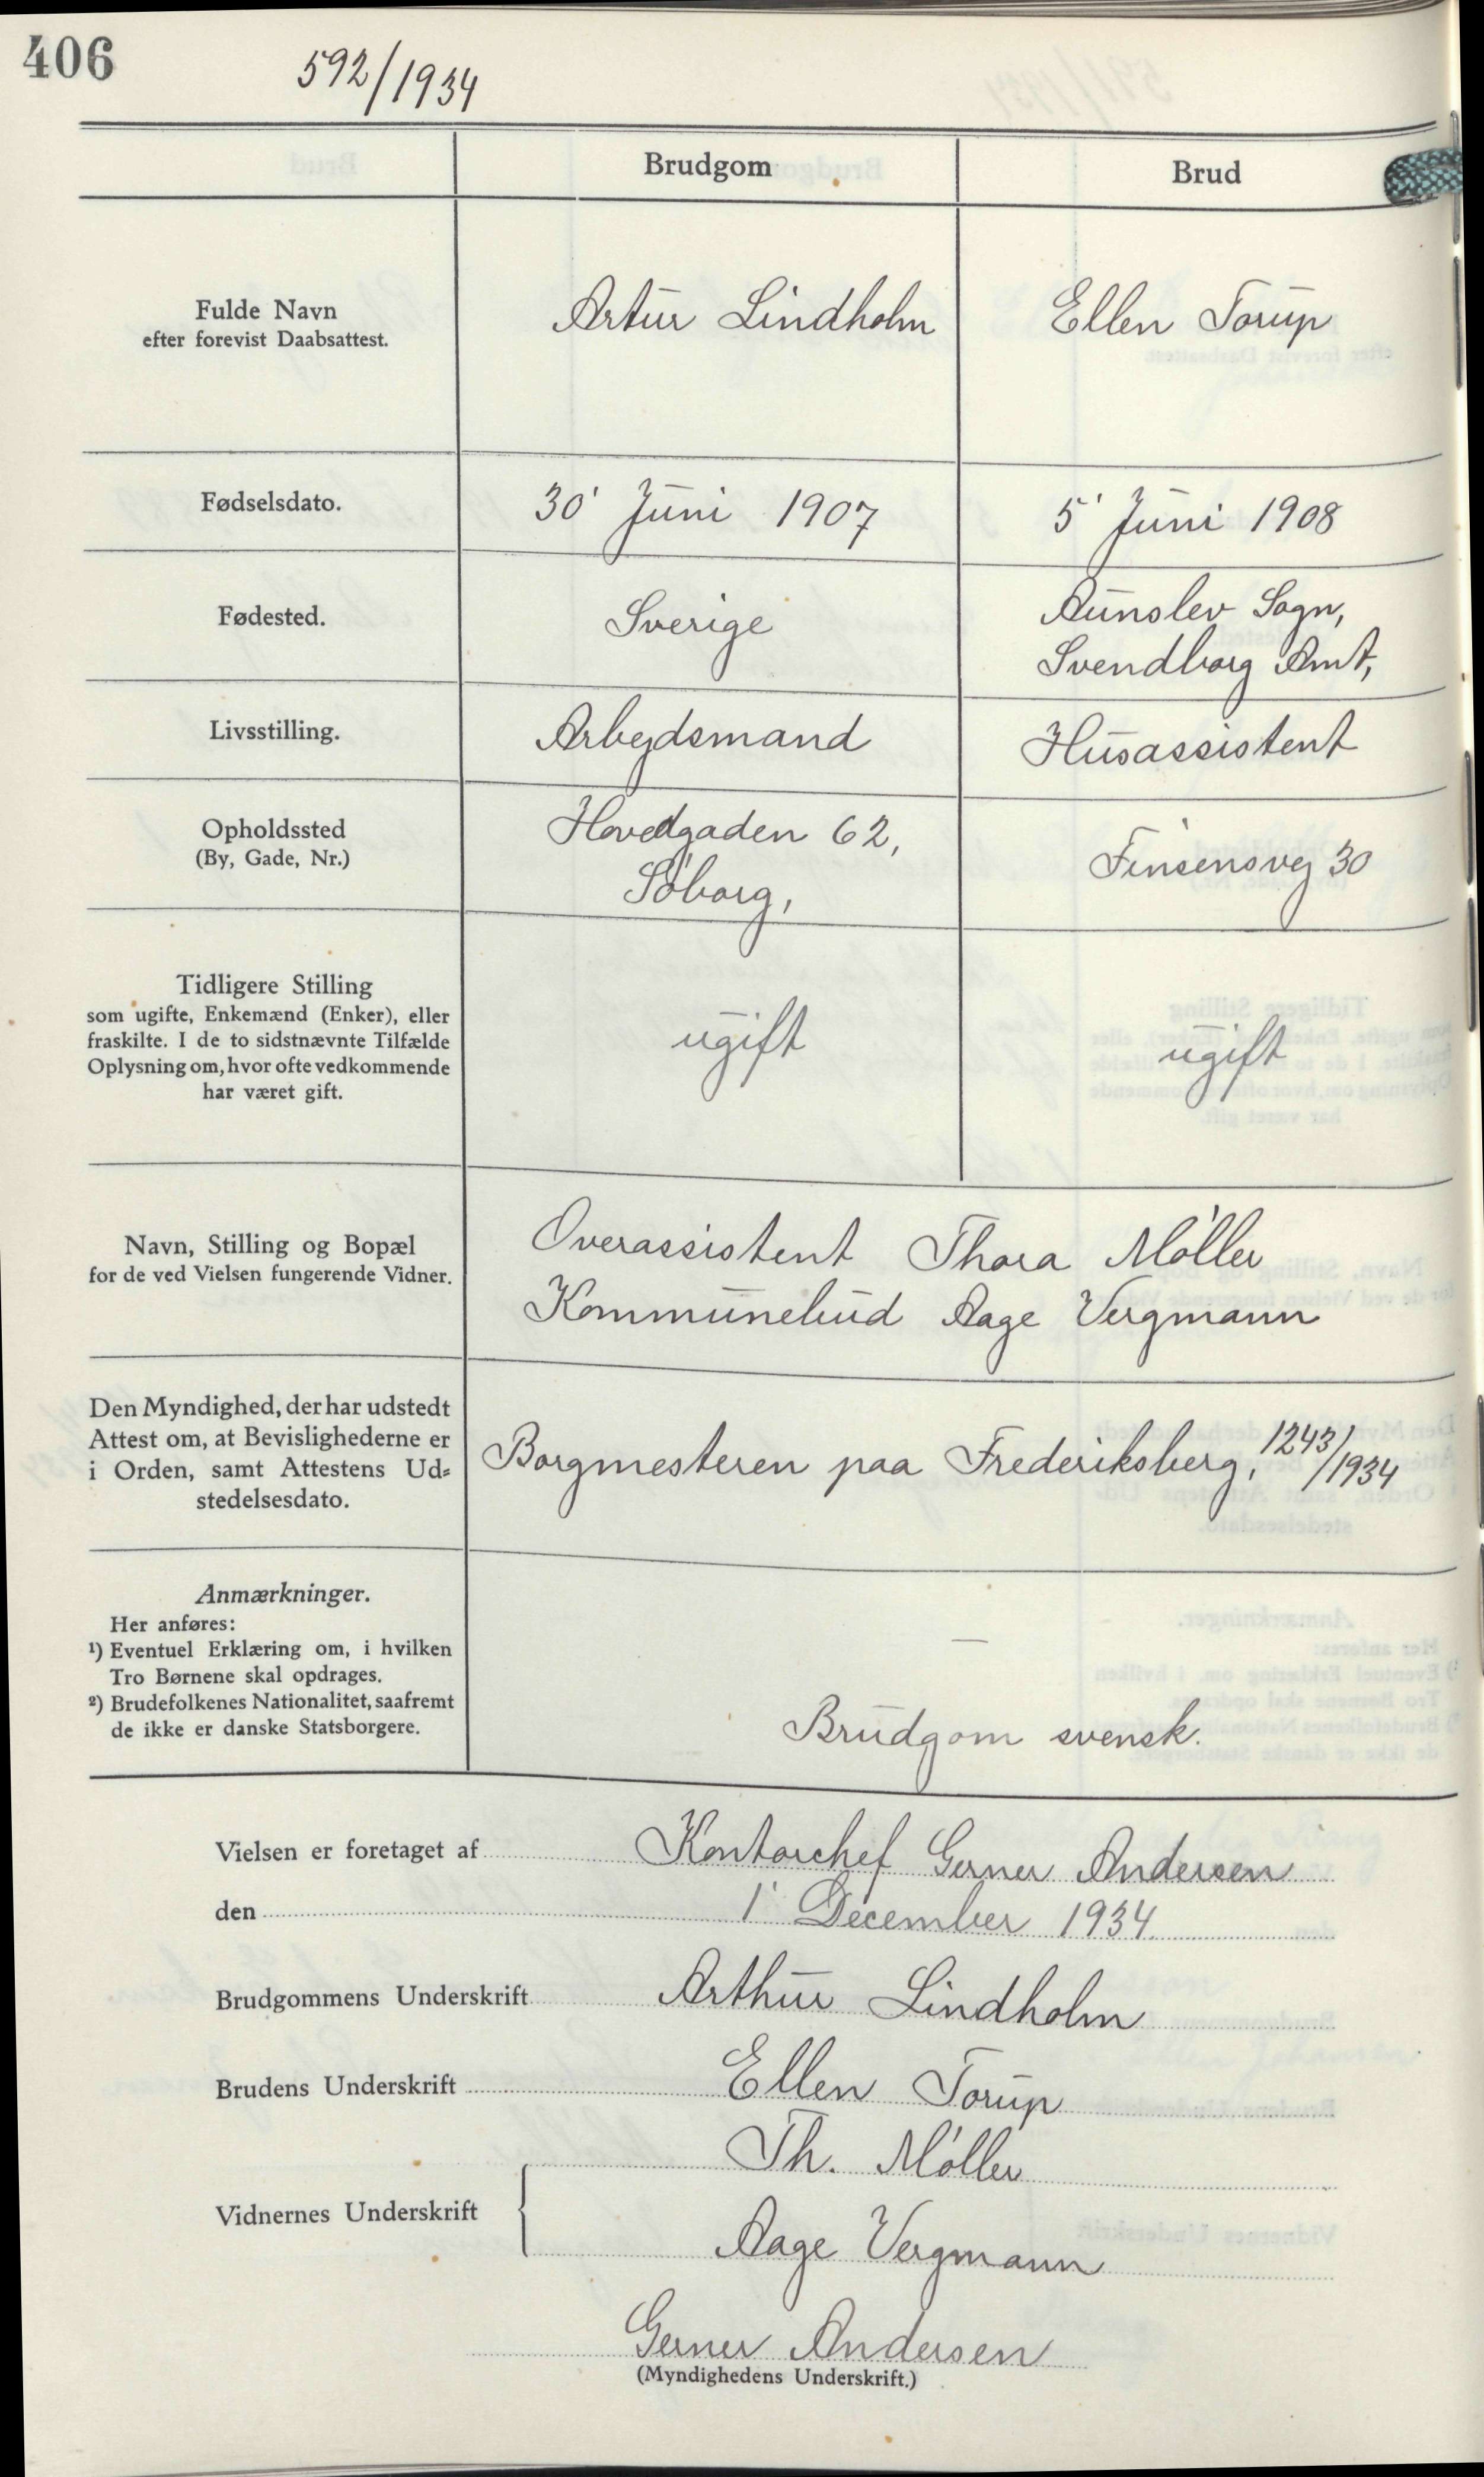 406
592/1934
Brudgom
Brud
Fulde Navn
efter forevist Daabsattest.
Artur Lindholm
Ellen Torup
Fødselsdato.
30' Juni 1907
5' Juni 1908
Fødested.
Sverige
Aunslev Sogn,
Svendborg Amt,
Livsstilling.
Arbejdsmand
Husassistent
Opholdssted
(By, Gade, Nr.)
Hovedgaden 62,
Søborg,
Finsensvej 30
Tidligere Stilling
som ugifte, Enkemænd (Enker), eller
fraskilte. I de to sidstnævnte Tilfælde
Oplysning om, hvor ofte vedkommende
har været gift.
ugift
ugift
Navn, Stilling og Bopæl
for de ved Vielsen fungerende Vidner.
Overassistent Thora Møller
Kommunebud Aage Vergmann
Den Myndighed, der har udstedt
Attest om, at Bevislighederne er
i Orden, samt Attestens Ud=
stedelsesdato.
Borgmesteren paa Frederiksberg, 1243/1934
Anmærkninger.
Her anføres:
¹) Eventuel Erklæring om, i hvilken
Tro Børnene skal opdrages.
²) Brudefolkenes Nationalitet, saafremt
de ikke er danske Statsborgere.
—
Brudgom svensk.
Vielsen er foretaget af Kontorchef Gerner Andersen
den 1' December 1934
Brudgommens Underskrift Arthur Lindholm
Brudens Underskrift Ellen Torup
Vidnernes Underskrift
Th. Møller
Aage Vergmann
Gerner Andersen
(Myndighedens Underskrift.)